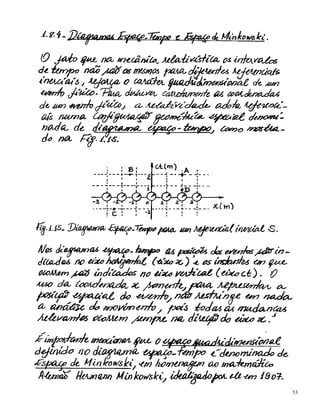 1.8.4- Diagramas Espaço-Tempo e Espaço de Minkowski.
O fato que na mecânica relativística os intervalos
de tempo não são os mesmos para diferentes referenciais
inerciais, reforça o caráter quadridimensional de um
evento físico. Para descrever corretamente as coordenadas
de um evento físico, a relatividade adota referenci-
ais numa configuração geométrica especial denomi-
nada de diagrama espaço-tempo, como mostra-
do na Fig. 1.15.
ct(m)
B
A
x(m)
C
Fig. 1.15. Diagrama Espaço-Tempo para um referencial inercial S.
Nos diagramas espaço-tempo as posições dos eventos são in-
dicadas no eixo horizontal (eixo x) e os instantes em que
ocorrem são indicados no eixo vertical (eixo ct). O
uso da coordenada x somente, para representar a
posição espacial do evento, não restringe em nada
a análise do movimento, pois todas as mudanças
relevantes ocorrem sempre na direção do eixo x.
É importante mencionar que o espaço quadridimensional
definido no diagrama espaço-tempo é denominado de
Espaço de Minkowski, em homenagem ao matemático
Alemão Hermann Minkowski, idealizado por ele em 1907.
53